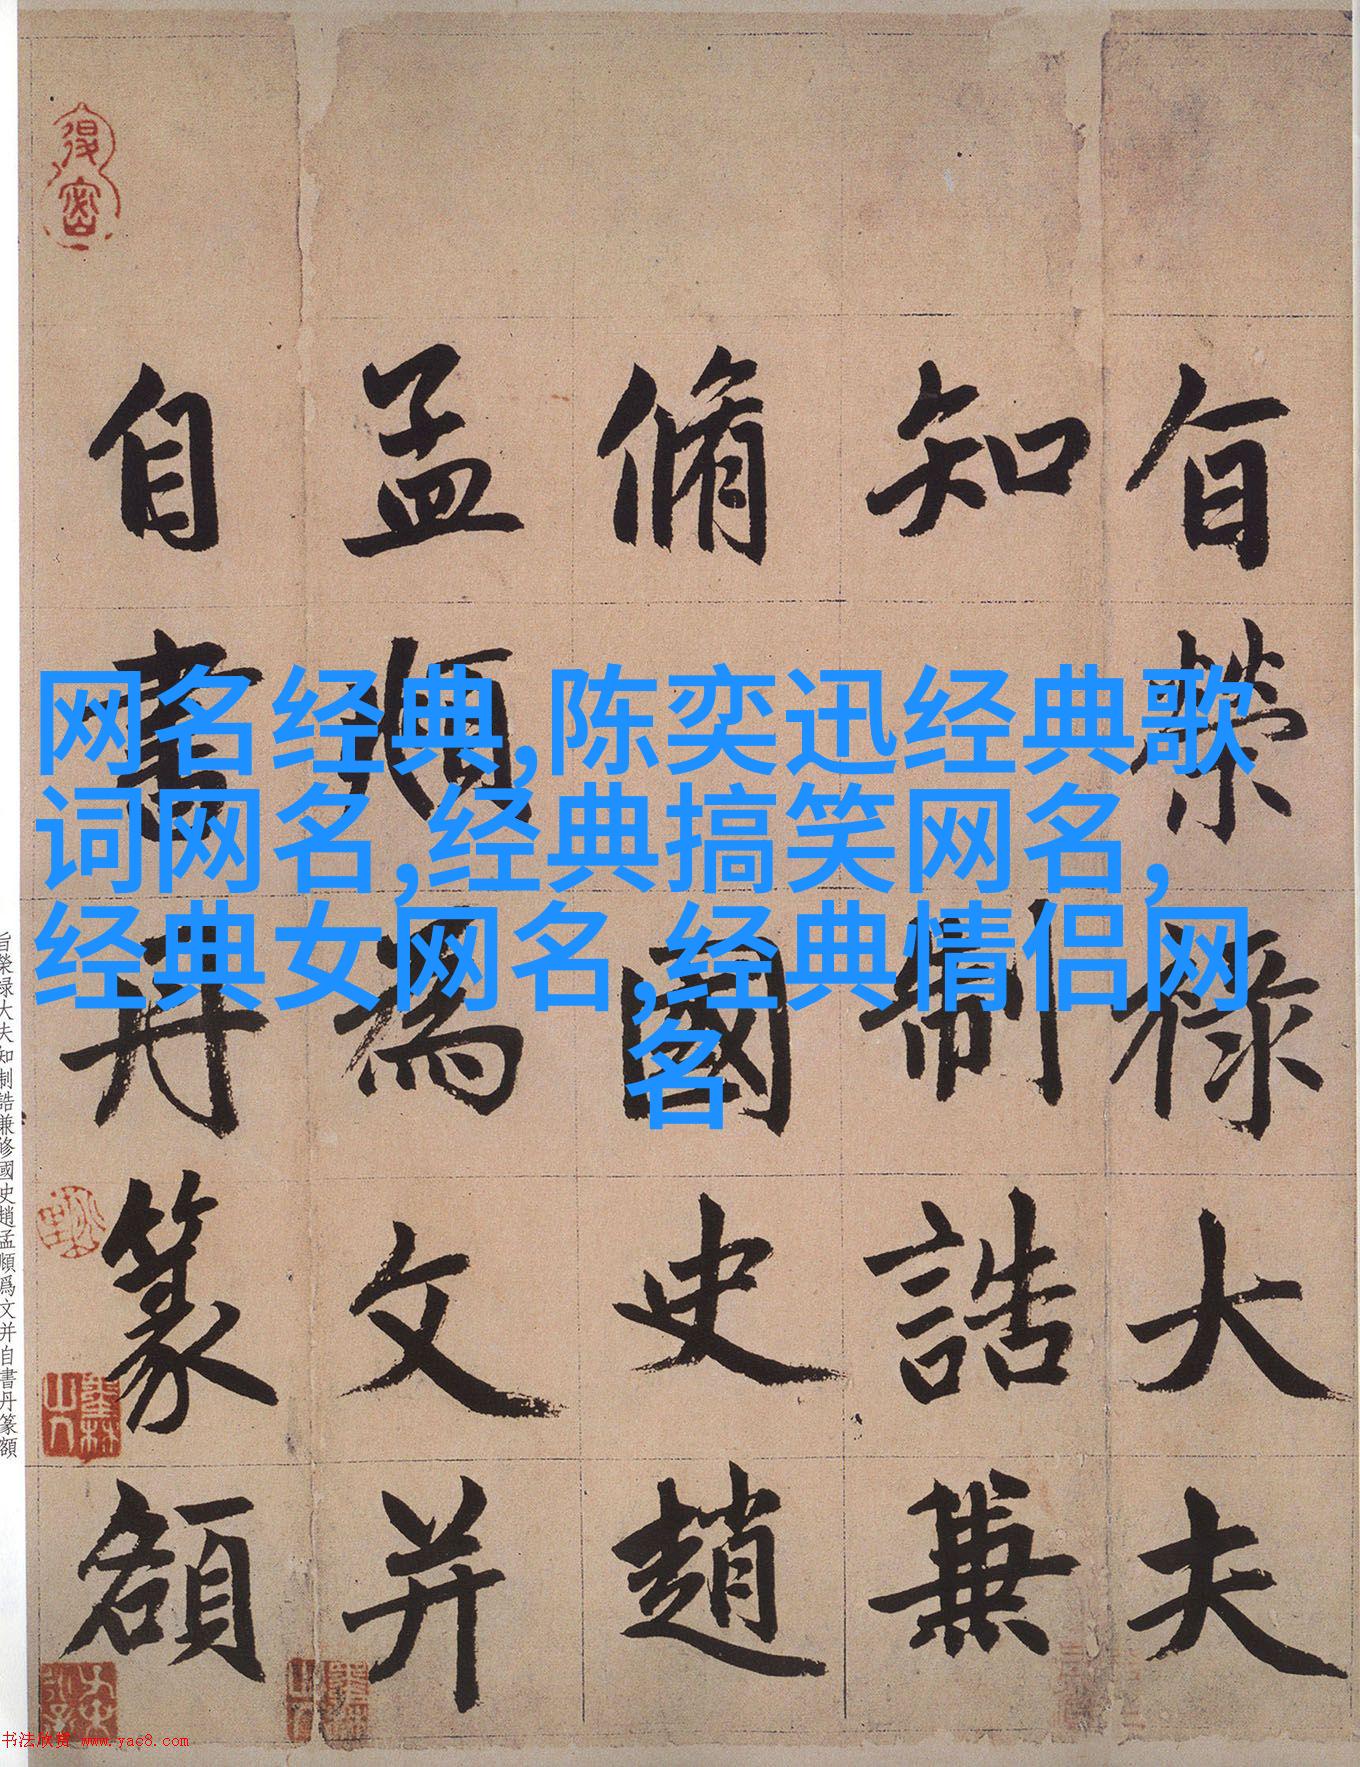 网名经典,陈奕迅经典歌
词网名,经典搞笑网名,
经典女网名,经典情侣网
名
旨榮祿大夫
知制誥兼
脩國史趙
孟頫為文并
自書丹篆額
旨榮禄大夫知制誥兼修國史趙孟頫爲文并自書丹篆額
墨林山人
书法欣赏 www.yac8.com